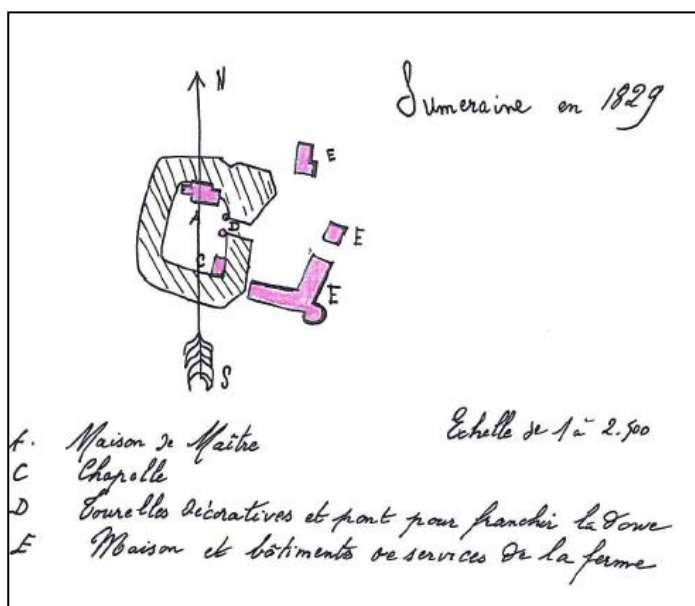 Sumeraine en 1829
N
E
A
D
E
C
E
S
Echelle de 1 à 2.500
A. Maison de Maître
C Chapelle
D Tourelles décoratives et pont pour franchir la Douve
E Maison et bâtiments de services de la ferme